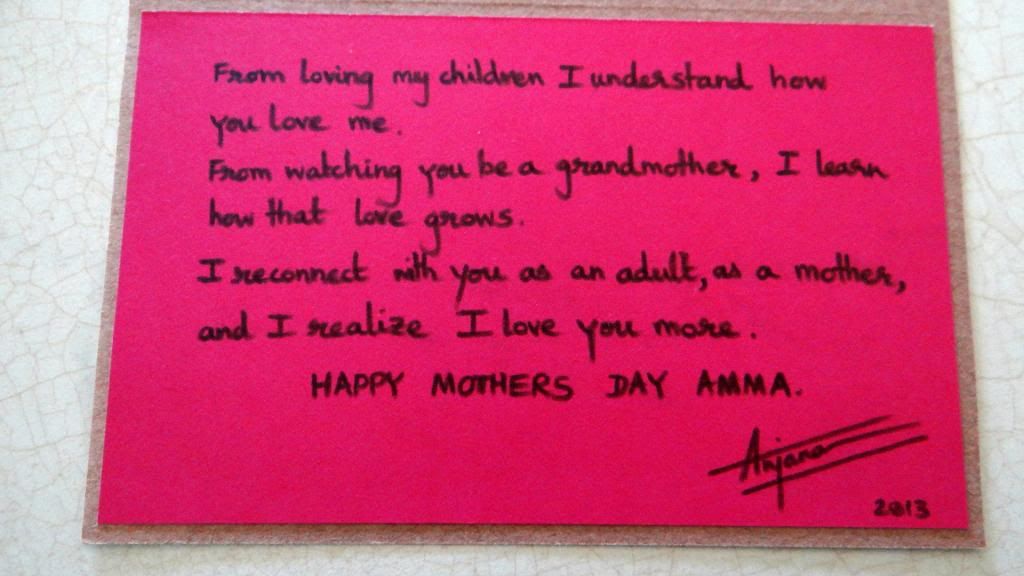 From loving my children I understand how
you love me.
From watching you be a grandmother, I learn
how that love grows.
I reconnect with you as an adult, as a mother,
and I realize I love you more.
HAPPY MOTHERS DAY AMMA.
Anjana
2013